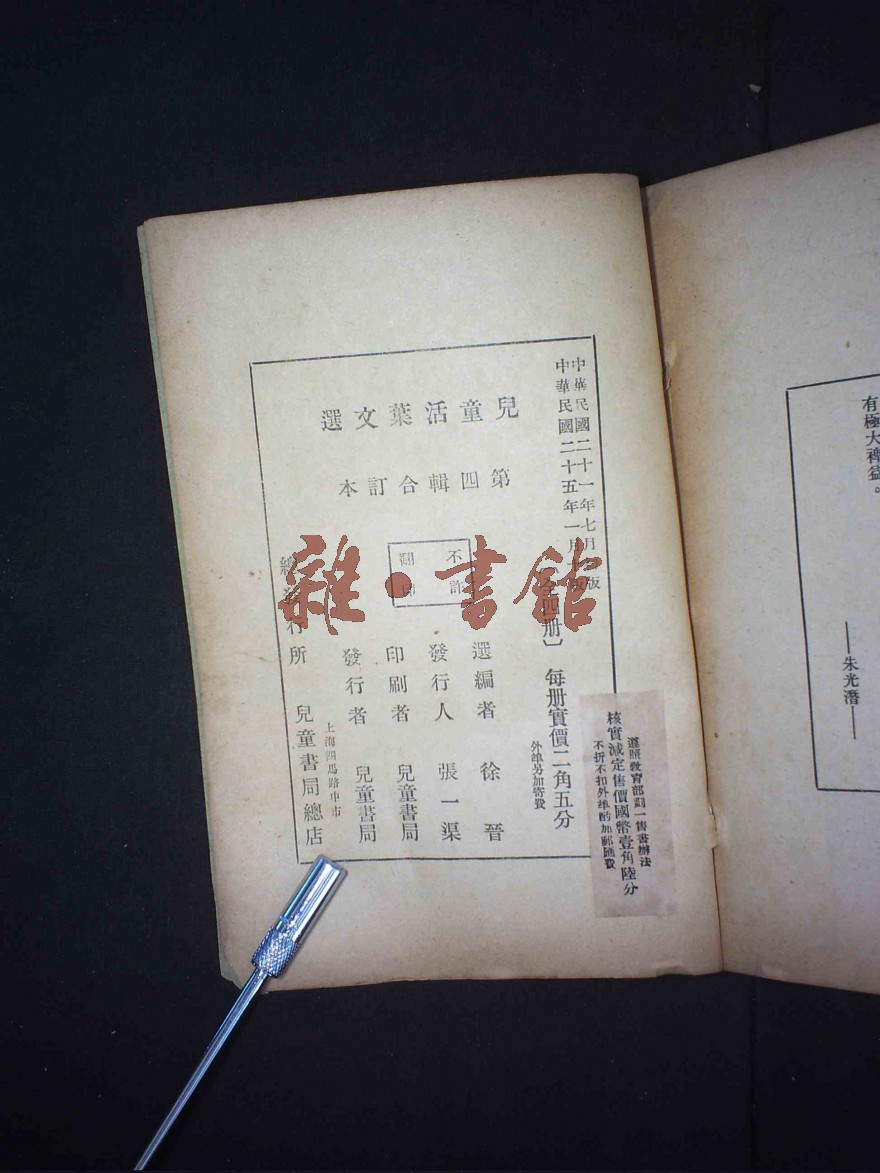 中華民國二十一年七月　版
中華民國二十五年一月　版
〔全四册〕 每册實價二角五分
外埠另加寄費
兒童活葉文選
第四輯合訂本
不許
翻印
選編者 徐晉
發行人 張一渠
印刷者 兒童書局
發行者 兒童書局
上海四馬路中市
總發行所 兒童書局總店
遵照教育部劃一售書辦法
核實減定售價國幣壹角陸分
不折不扣外埠酌加郵匯費
有極大裨益。
——朱光潛——
雜·書館